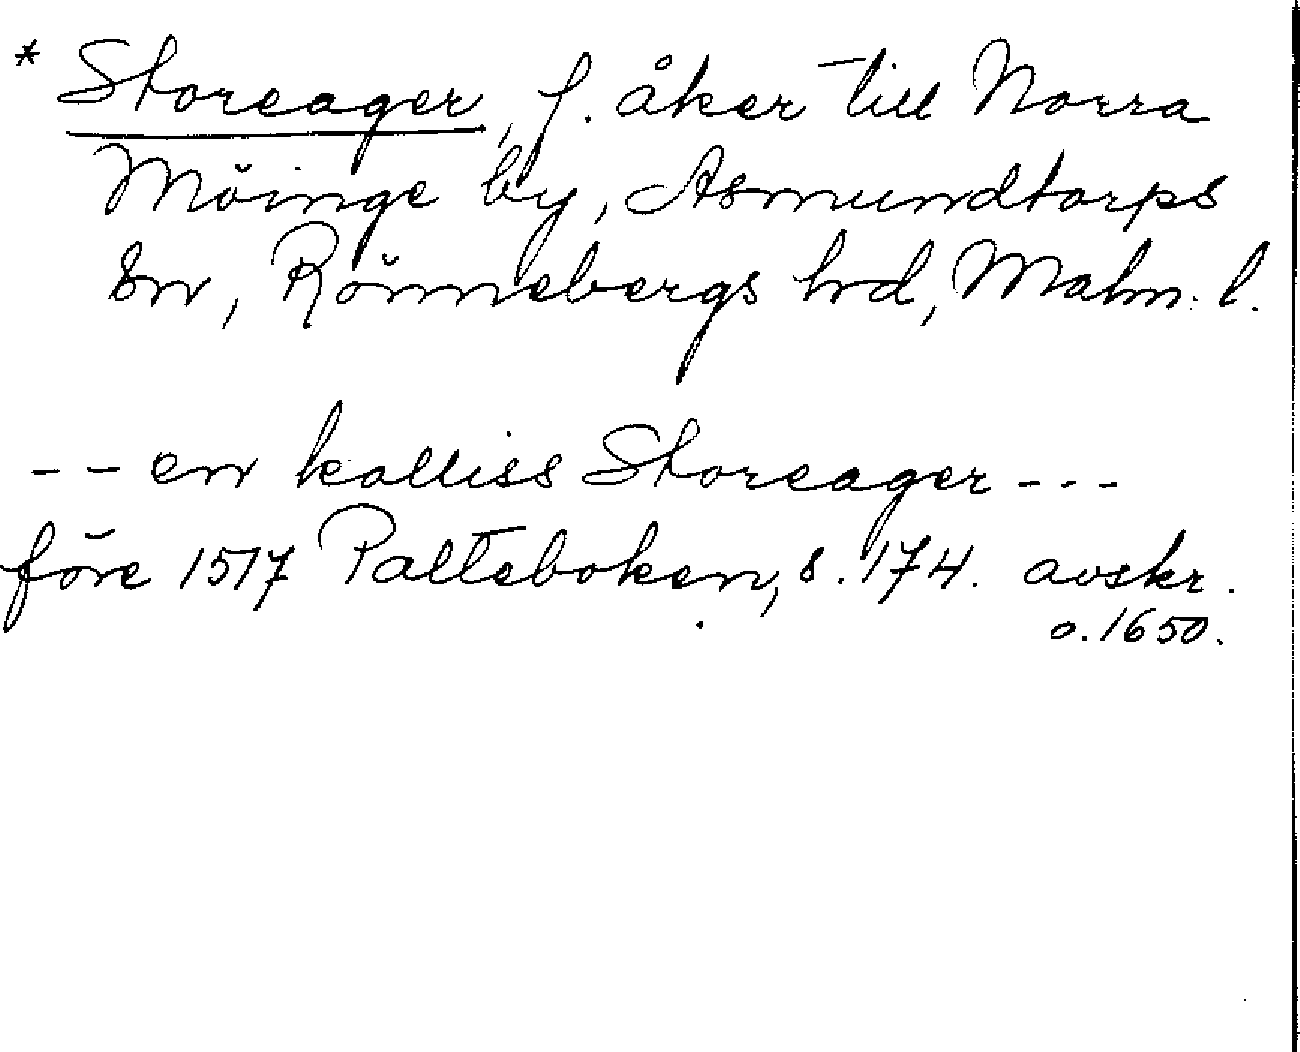 * Storeager, f. åker till Norra
Möinge by, Asmundtorps
sn, Rönnebergs hd, Malm. l.
-- en kalliss Storeager ---
före 1517 Palteboken, s. 174. avskr.
o. 1650.